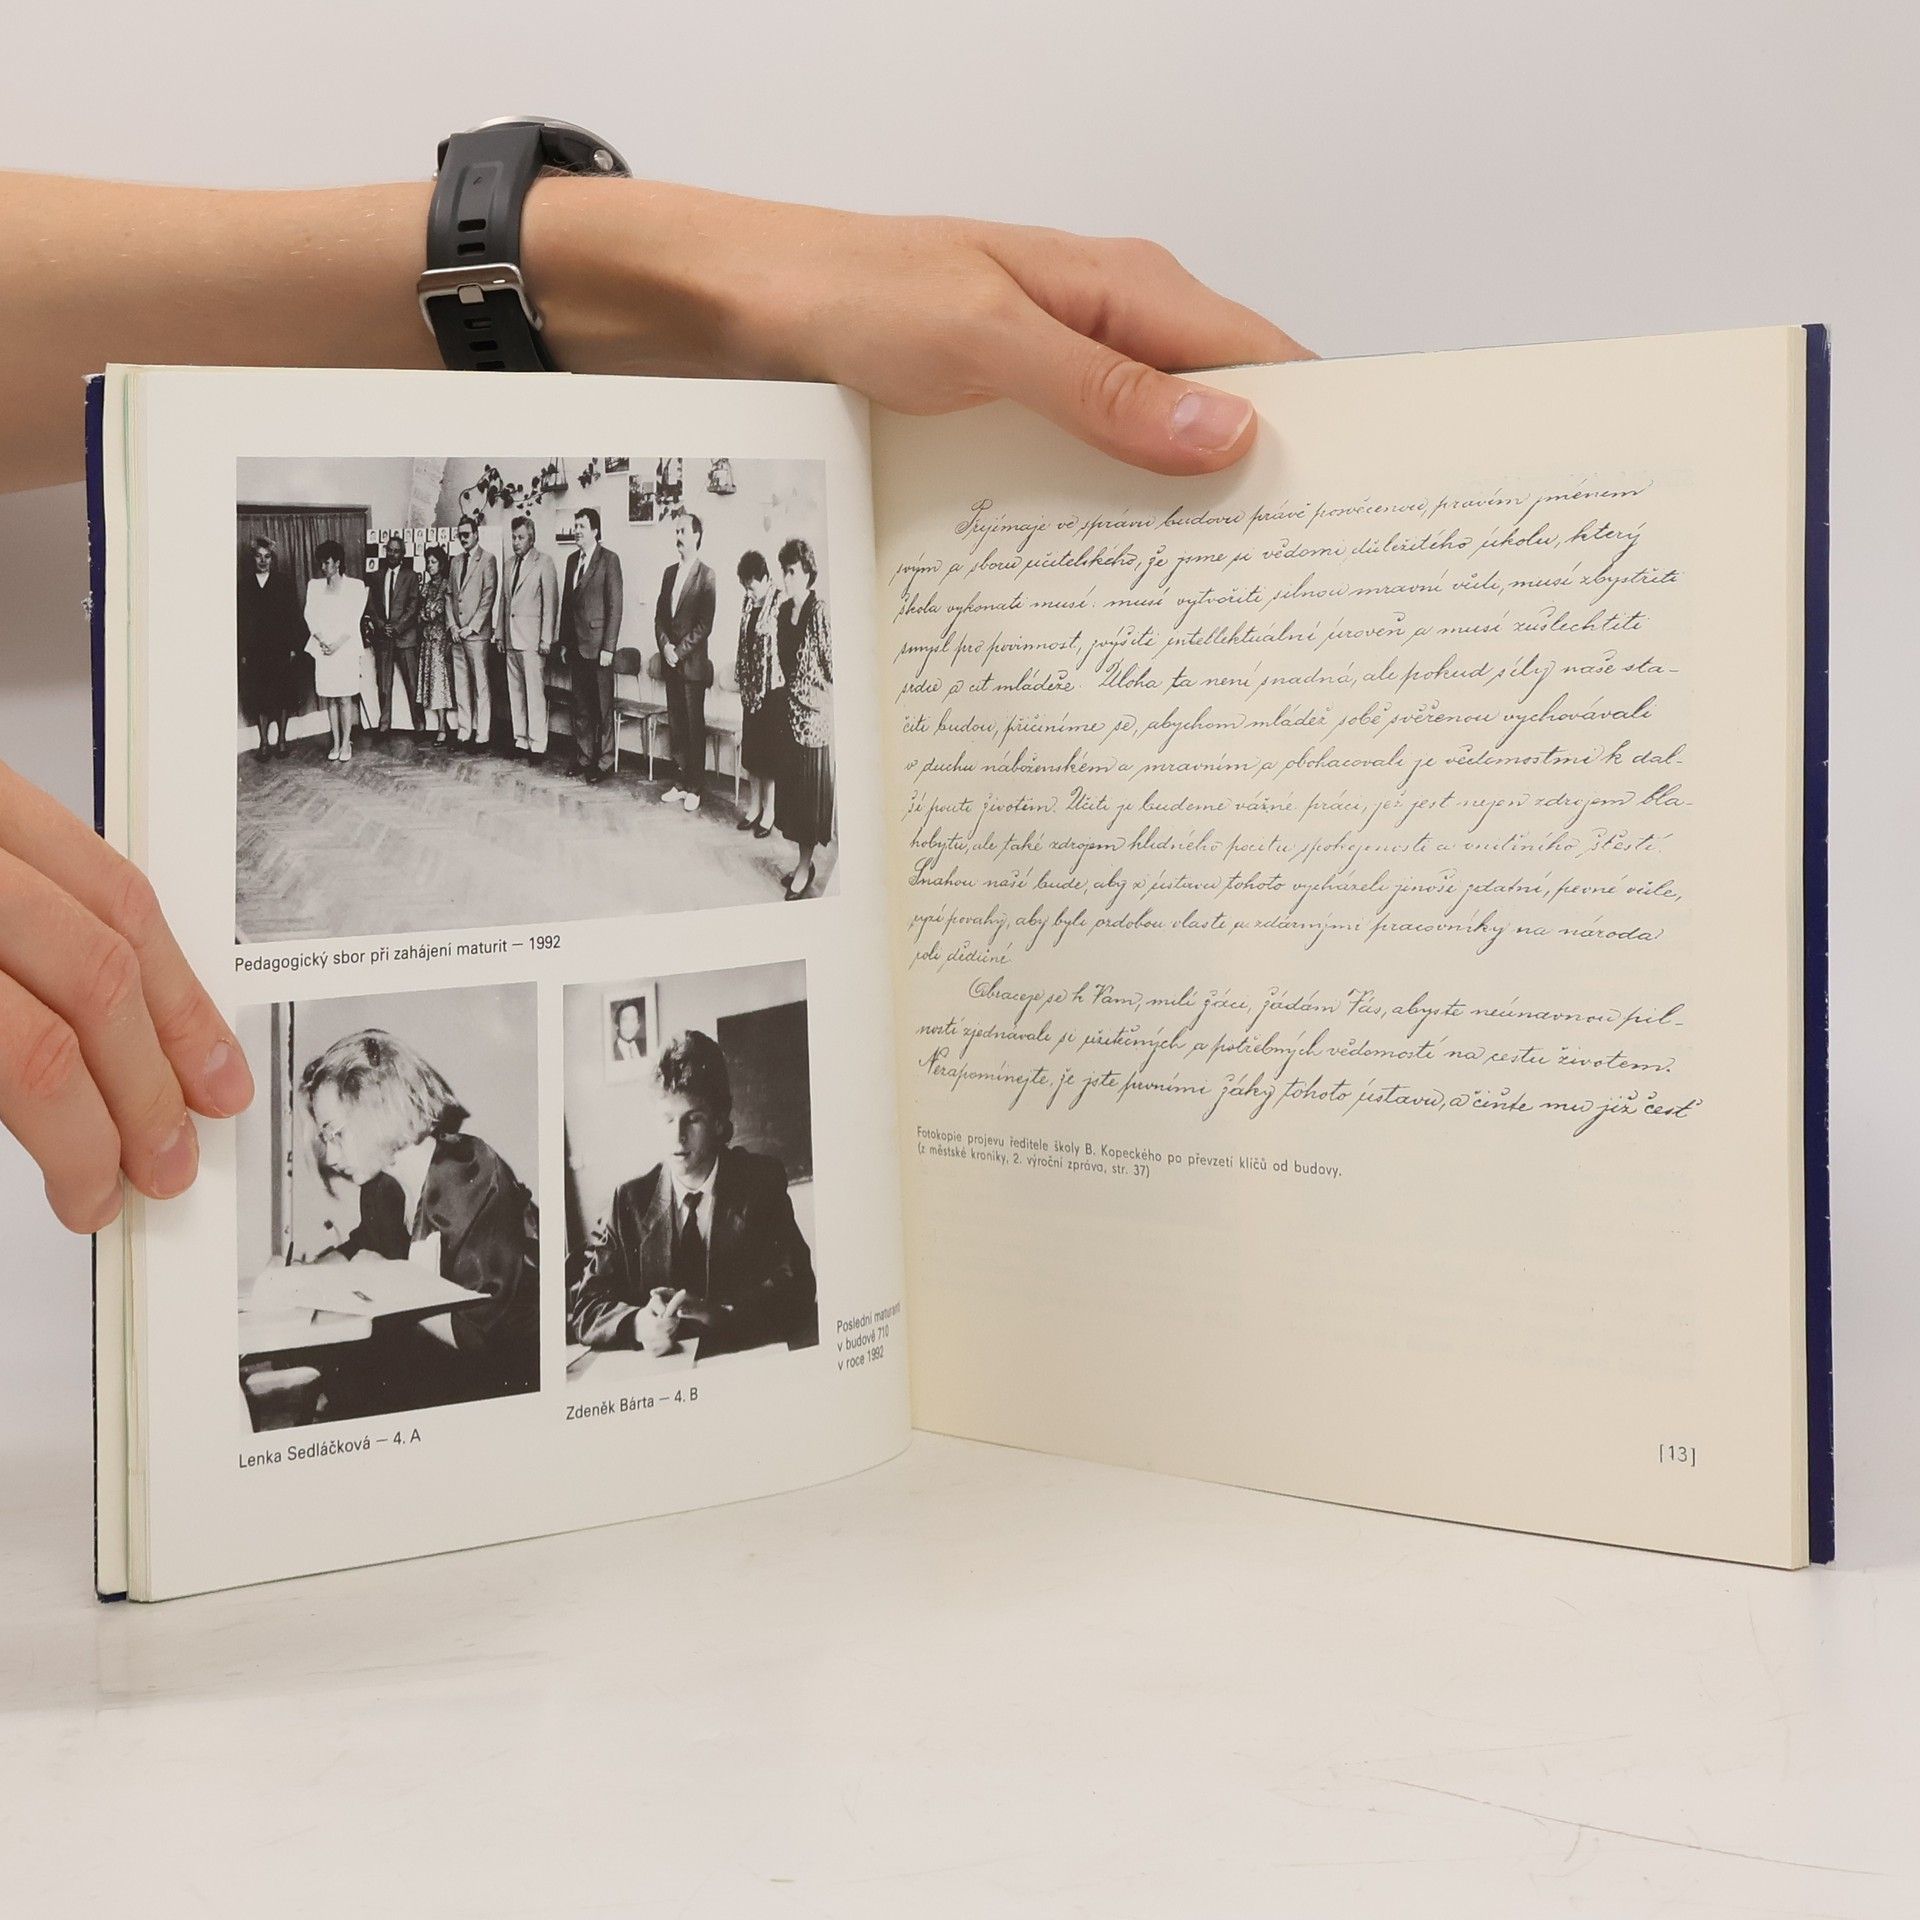 Pedagogický sbor při zahájení maturit — 1992
Lenka Sedláčková — 4. A
Zdeněk Bárta — 4. B
Poslední maturanti
v budově 710
v roce 1992
Přijímaje ve správu budovu právě posvěcenou, pravím jménem
svým a sboru učitelského, že jsme si vědomi důležitého úkolu, který
škola vykonati musí: musí vytvořiti silnou mravní vůli, musí zbystřiti
smysl pro povinnost, zvýšiti intellektuální úroveň a musí zušlechtiti
srdce a cit mládeže. Úloha ta není snadná, ale pokud síly naše sta-
čiti budou, přičiníme se, abychom mládež sobě svěřenou vychovávali
v duchu náboženském a mravním a obohacovali je vědomostmi k dal-
ší pouti životem. Učiti je budeme vážné práci, jež jest nejen zdrojem bla-
hobytu, ale také zdrojem klidného pocitu spokojenosti a vnitřního štěstí.
Snahou naší bude, aby z ústavu tohoto vycházeli jinoši zdatní, pevné vůle,
ryzí povahy, aby byli ozdobou vlasti a zdárnými pracovníky na národa
roli dědičné.
Obraceje se k Vám, milí žáci, žádám Vás, abyste neúnavnou pil-
ností zjednávali si užitečných a potřebných vědomostí na cestu životem.
Nezapomínejte, že jste prvními žáky tohoto ústavu, a čiňte mu již čest
Fotokopie projevu ředitele školy B. Kopeckého po převzetí klíčů od budovy.
(z městské kroniky, 2. výroční zpráva, str. 37)
[13]